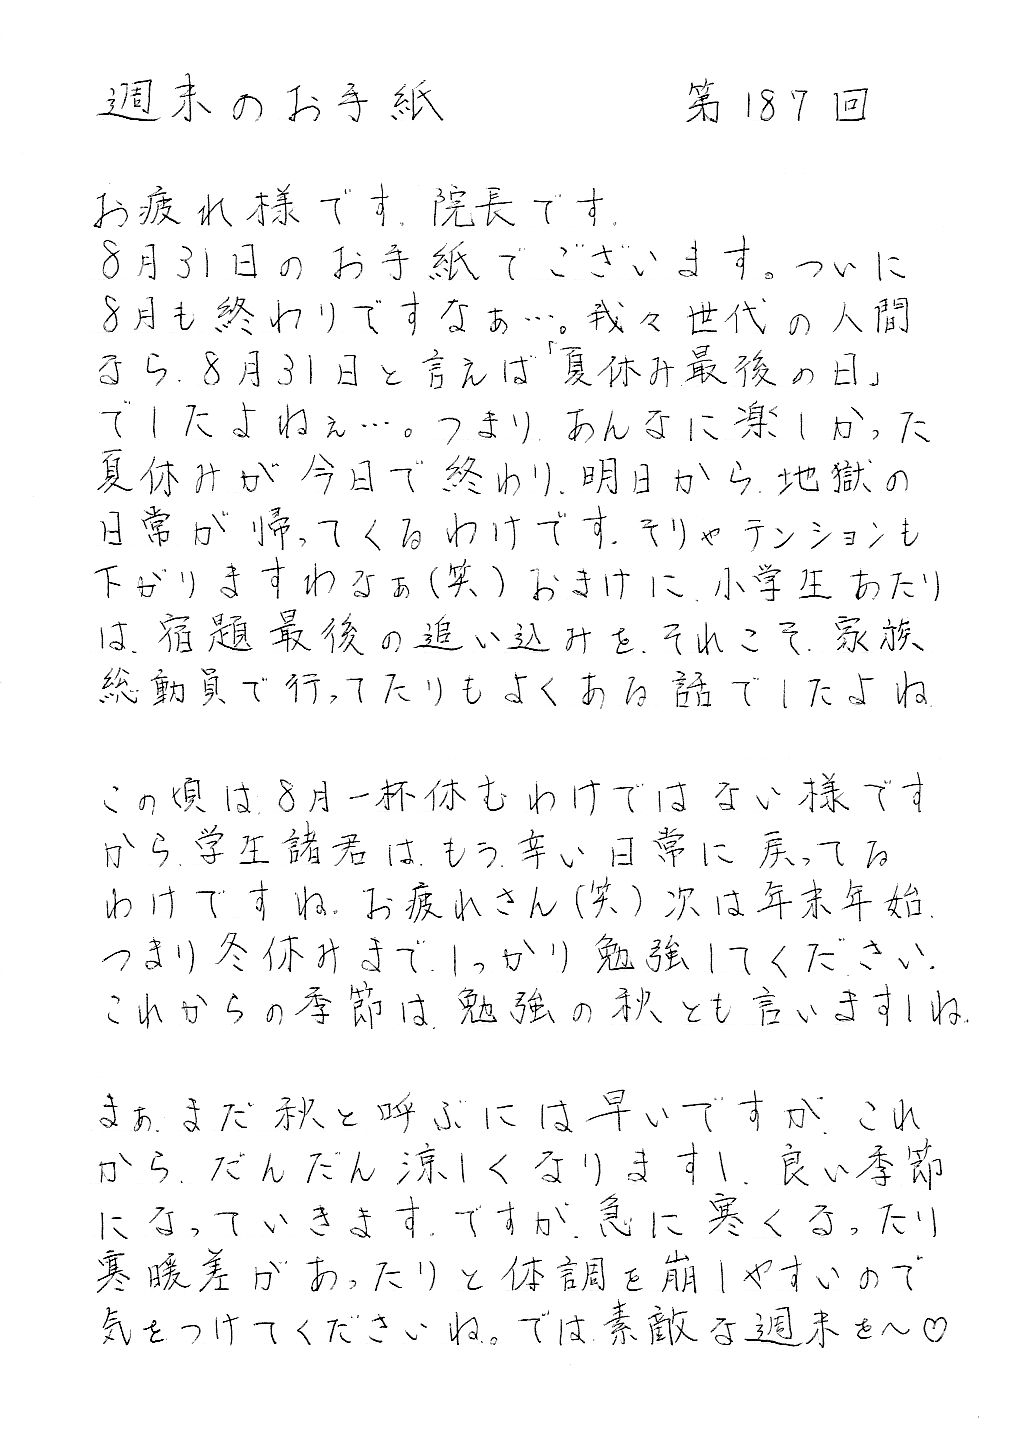 週末のお手紙 第187回
お疲れ様です、院長です、
8月31日のお手紙でございます。ついに
8月も終わりですなぁ…。我々世代の人間
なら、8月31日と言えば「夏休み最後の日」
でしたよねぇ…。つまり、あんなに楽しかった
夏休みが今日で終わり、明日から、地獄の
日常が帰ってくるわけです、そりゃテンションも
下がりますわなぁ(笑)おまけに、小学生あたり
は、宿題最後の追い込みを、それこそ、家族
総動員で行ってたりもよくある話でしたよね、
この頃は、8月一杯休むわけではない様です
から、学生諸君は、もう、辛い日常に戻ってる
わけですね。お疲れさん(笑)次は年末年始、
つまり冬休みまで、しっかり勉強してください、
これからの季節は、勉強の秋とも言いますしね、
まぁ、まだ秋と呼ぶには早いですが、これ
から、だんだん涼しくなりますし、良い季節
になっていきます、ですが、急に寒くなったり
寒暖差があったりと体調を崩しやすいので
気をつけてくださいね。では、素敵な週末を〜♡